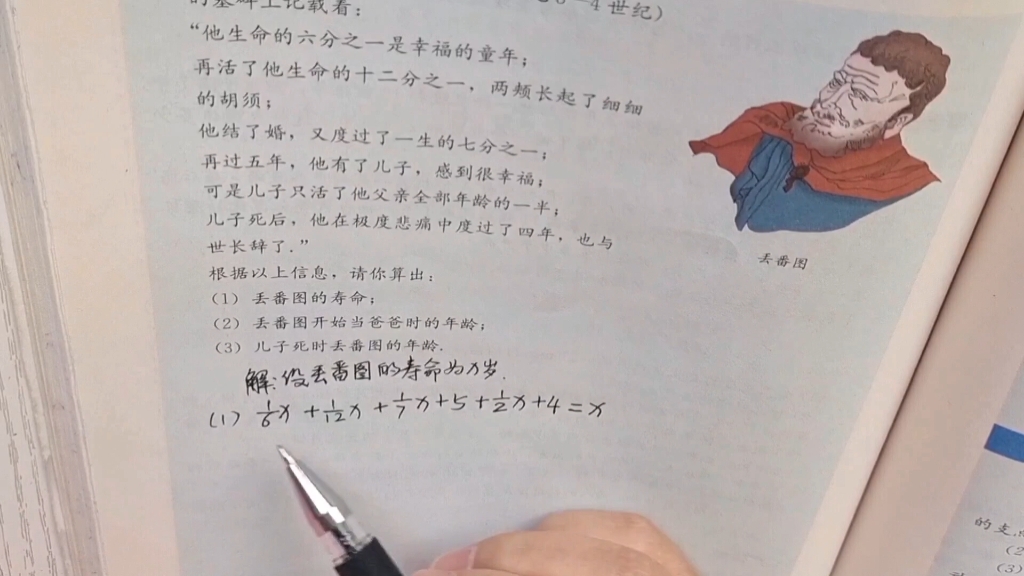 的墓碑上记载着：
"他生命的六分之一是幸福的童年；
再活了他生命的十二分之一，两颊长起了细细
的胡须；
他结了婚，又度过了一生的七分之一；
再过五年，他有了儿子，感到很幸福；
可是儿子只活了他父亲全部年龄的一半；
儿子死后，他在极度悲痛中度过了四年，也与
世长辞了."
根据以上信息，请你算出：
(1) 丢番图的寿命；
(2) 丢番图开始当爸爸时的年龄；
(3) 儿子死时丢番图的年龄.
解：设丢番图的寿命为x岁.
(1) 1/6x + 1/12x + 1/7x + 5 + 1/2x + 4 = x
丢番图
4世纪)
(2
(3)